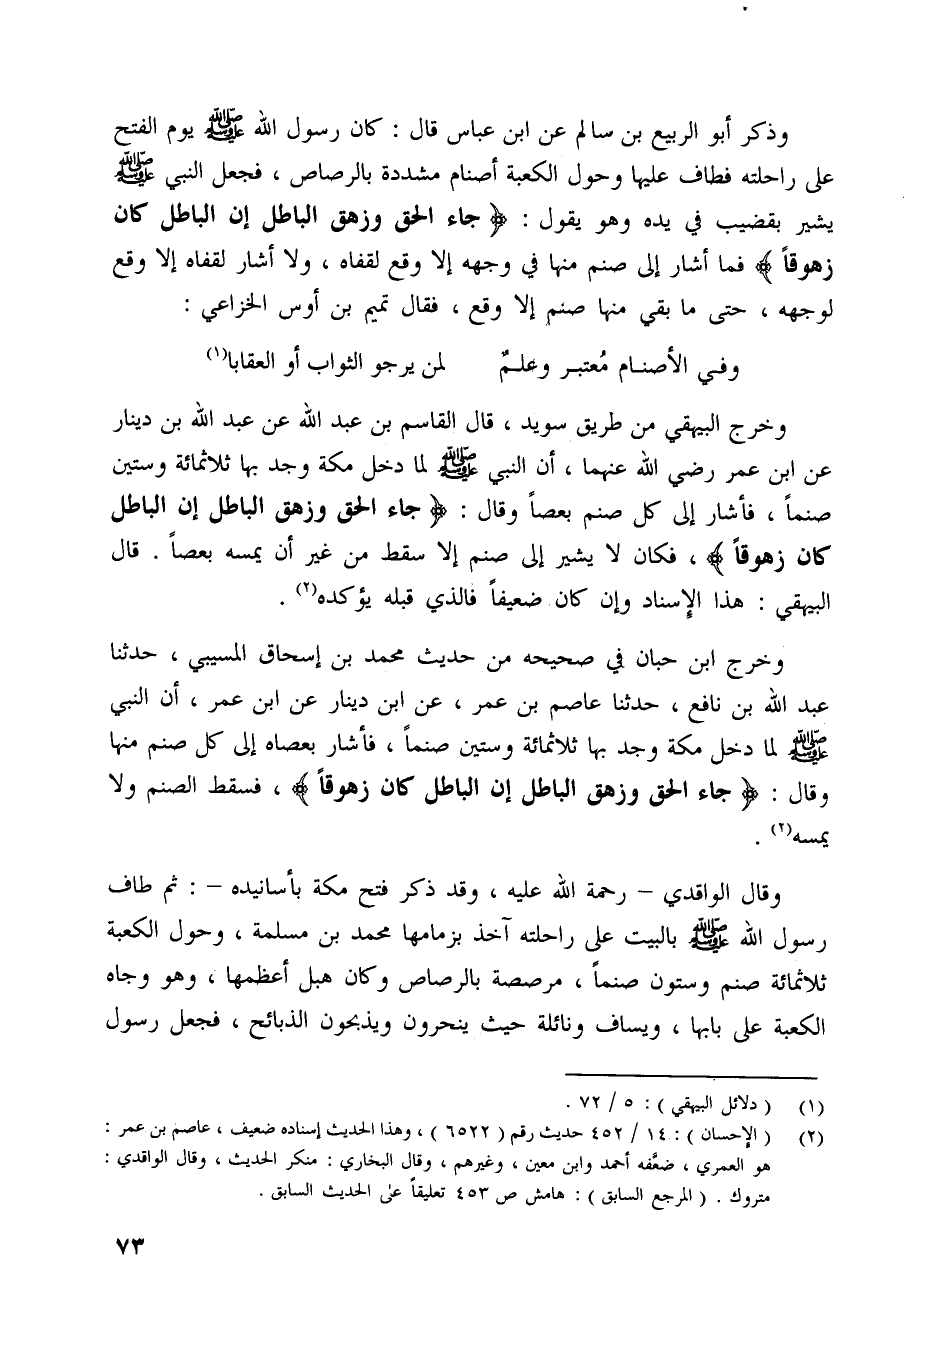 وذكر أبو الربيع بن سالم عن ابن عباس قال : كان رسول الله ﷺ يوم الفتح
على راحلته فطاف عليها وحول الكعبة أصنام مشددة بالرصاص ، فجعل النبي ﷺ
يشير بقضيب في يده وهو يقول : ﴿ جاء الحق وزهق الباطل إن الباطل كان
زهوقاً ﴾ فما أشار إلى صنم منها في وجهه إلا وقع لقفاه ، ولا أشار لقفاه إلا وقع
لوجهه ، حتى ما بقي منها صنم إلا وقع ، فقال تميم بن أوس الخزاعي :
وفـي الأصنـام مُعتبـر وعلـمٌ لمن يرجو الثواب أو العقابا(١)
وخرج البيهقي من طريق سويد ، قال القاسم بن عبد الله عن عبد الله بن دينار
عن ابن عمر رضي الله عنهما ، أن النبي ﷺ لما دخل مكة وجد بها ثلاثمائة وستين
صنماً ، فأشار إلى كل صنم بعصاً وقال : ﴿ جاء الحق وزهق الباطل إن الباطل
كان زهوقاً ﴾ ، فكان لا يشير إلى صنم إلا سقط من غير أن يمسه بعصاً . قال
البيهقي : هذا الإسناد وإن كان ضعيفاً فالذي قبله يؤكده(٢) .
وخرج ابن حبان في صحيحه من حديث محمد بن إسحاق المسيبي ، حدثنا
عبد الله بن نافع ، حدثنا عاصم بن عمر ، عن ابن دينار عن ابن عمر ، أن النبي
ﷺ لما دخل مكة وجد بها ثلاثمائة وستين صنماً ، فأشار بعصاه إلى كل صنم منها
وقال : ﴿ جاء الحق وزهق الباطل إن الباطل كان زهوقاً ﴾ ، فسقط الصنم ولا
يمسه(٢) .
وقال الواقدي – رحمة الله عليه ، وقد ذكر فتح مكة بأسانيده – : ثم طاف
رسول الله ﷺ بالبيت على راحلته آخذ بزمامها محمد بن مسلمة ، وحول الكعبة
ثلاثمائة صنم وستون صنماً ، مرصصة بالرصاص وكان هبل أعظمها ، وهو وجاه
الكعبة على بابها ، ويساف ونائلة حيث ينحرون ويذبحون الذبائح ، فجعل رسول
(١) ( دلائل البيهقي ) : ٥ / ٧٢ .
(٢) ( الإحسان ) : ١٤ / ٤٥٢ حديث رقم ( ٦٥٢٢ ) ، وهذا الحديث إسناده ضعيف ، عاصم بن عمر :
هو العمري ، ضعَّفه أحمد وابن معين ، وغيرهم ، وقال البخاري : منكر الحديث ، وقال الواقدي :
متروك . ( المرجع السابق ) : هامش ص ٤٥٣ تعليقاً على الحديث السابق .
٧٣